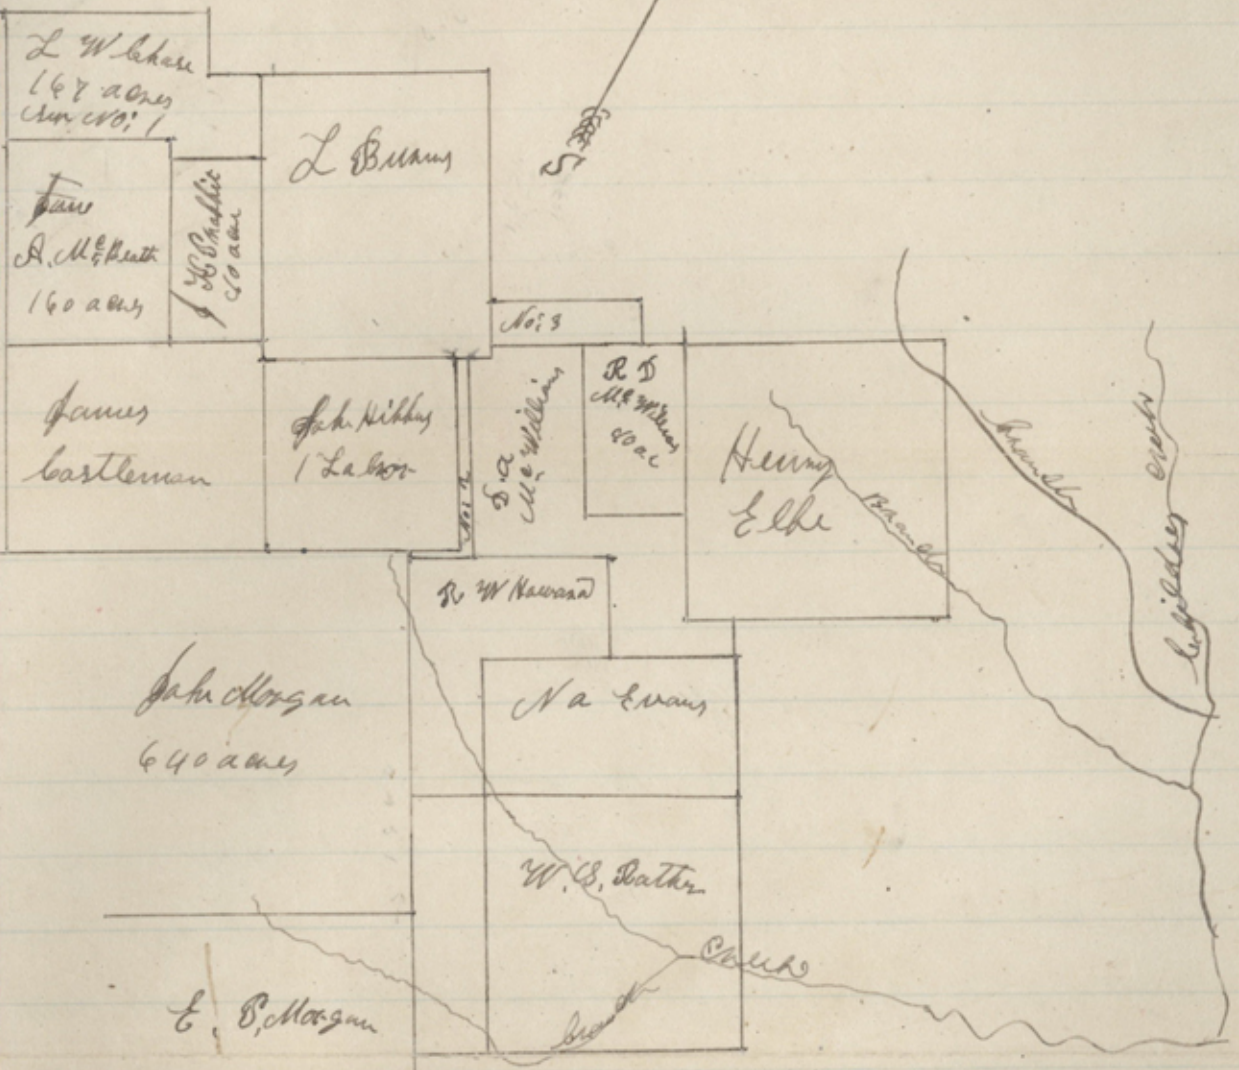 L W Chase
167 acres
Sur No: 1
Jane
A. McBeath
160 acres
J H
60 acres
L Burns
S
No: 3
James
Castleman
John Hibbins
1 Labor
No: 2
D. a
McWilliams
R D
McWilliams
80 ac
Henry
Elhe
Branch
branch
Childers creek
R W Howard
John Morgan
640 acres
N a Evans
W. S. Rather
Creek
branch
E. P. Morgan